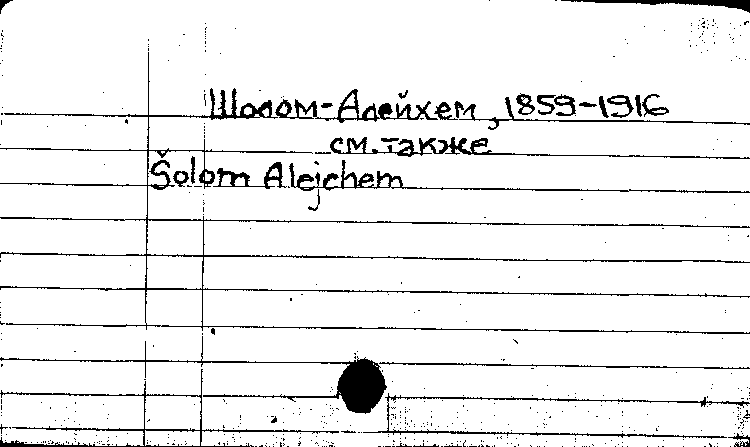 Шолом-Алейхем, 1859-1916
см. также
Šolom Alejchem